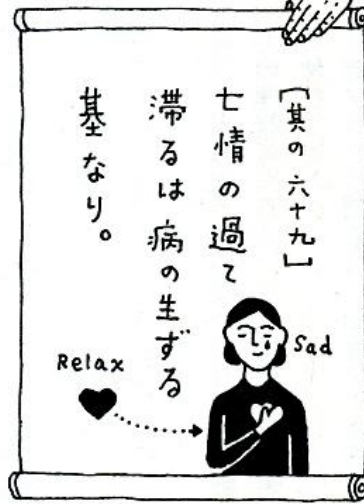 ［其の六十九］
七情の過て
滞るは病の生ずる
基なり。
Sad
Relax